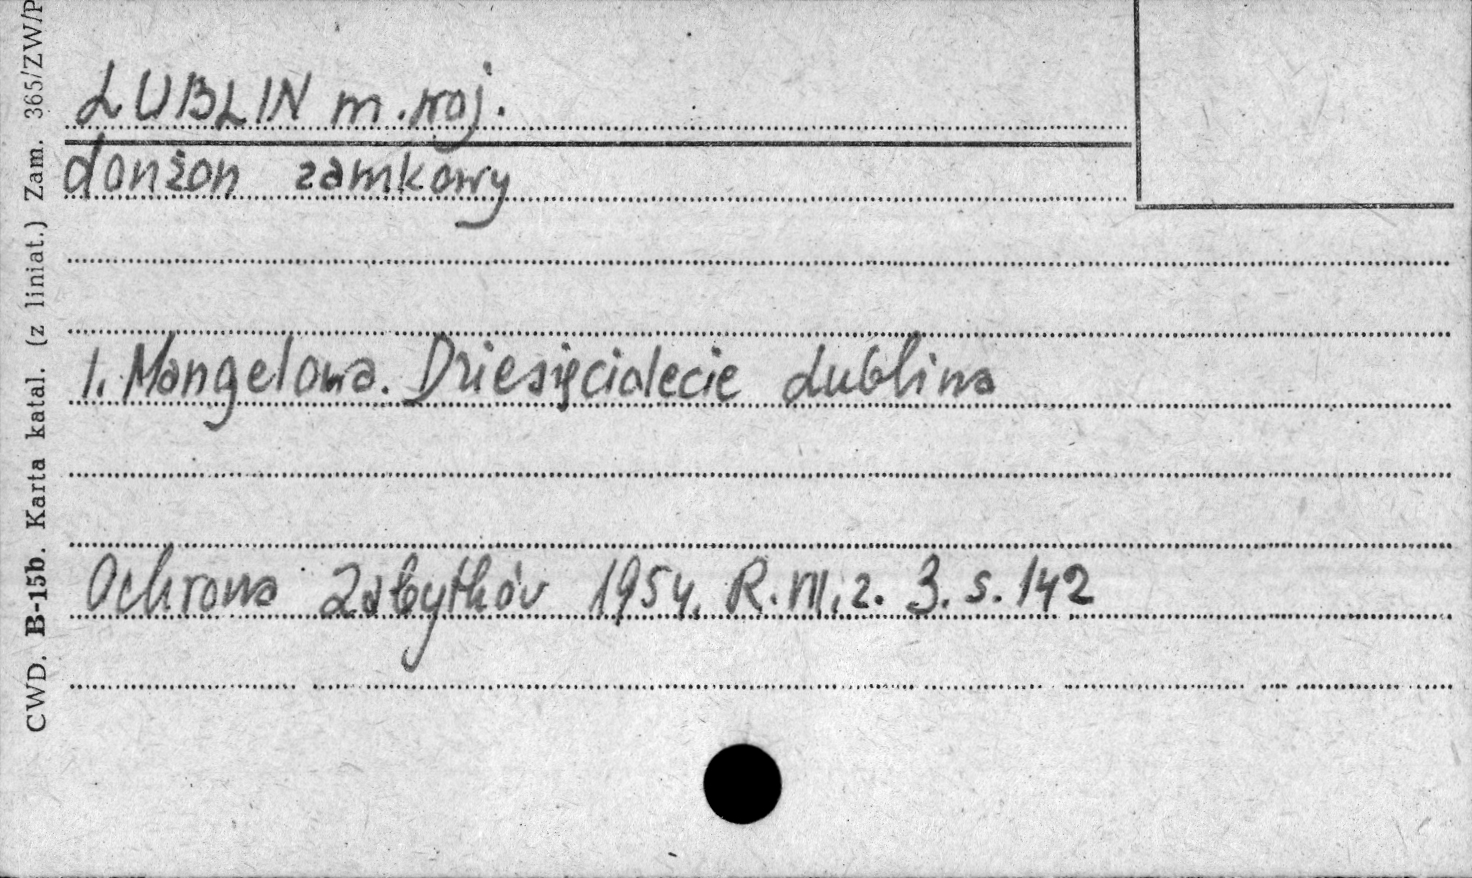 LUBLIN m. woj.
donżon zamkowy
I. Mangelowa. Dziesięciolecie Lublina
Ochrona Zabytków 1954. R. VII. z. 3. s. 142
CWD. B-15b. Karta katal. (z liniat.) Zam. 365/ZW/P